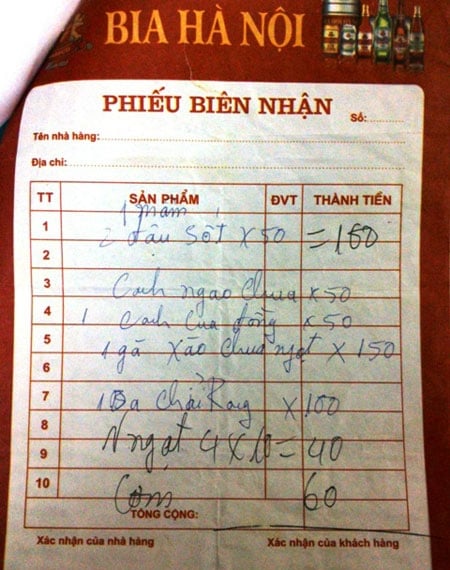 BIA HÀ NỘI
PHIẾU BIÊN NHẬN
Số:
Tên nhà hàng:
Địa chỉ:
TT SẢN PHẨM ĐVT THÀNH TIỀN
1 1 mam
2 đâu Sốt x 50 = 150
2
3 Canh ngao chua x 50
4 1 Canh Cua đồng x 50
5 1 gà Xào chua ngọt x 150
6
7 1 Ba chỉ Rang x 100
8
9 N ngọt 4 x 10 = 40
10 Cơm 60
TỔNG CỘNG:
Xác nhận của nhà hàng Xác nhận của khách hàng